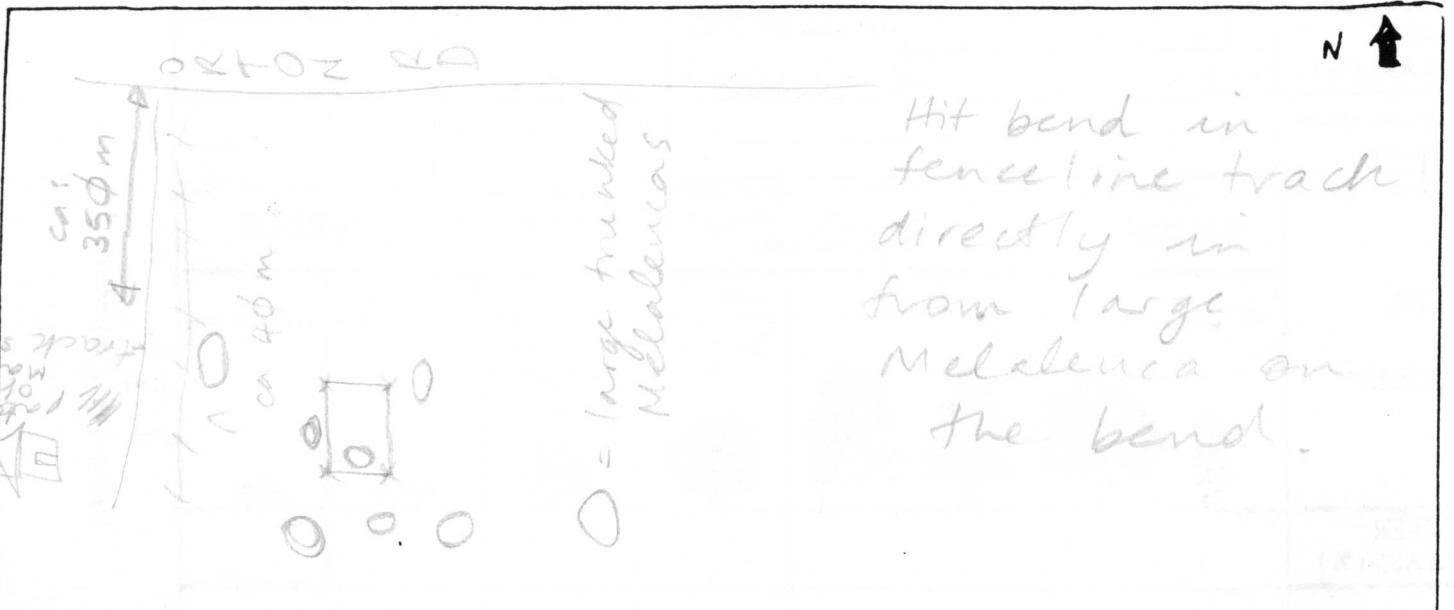 N
ORTON RD
ca:
350 m
ca 40 m
track
= large trunked
Melaleucas
Hit bend in
fenceline track
directly in
from large
Melaleuca on
the bend.